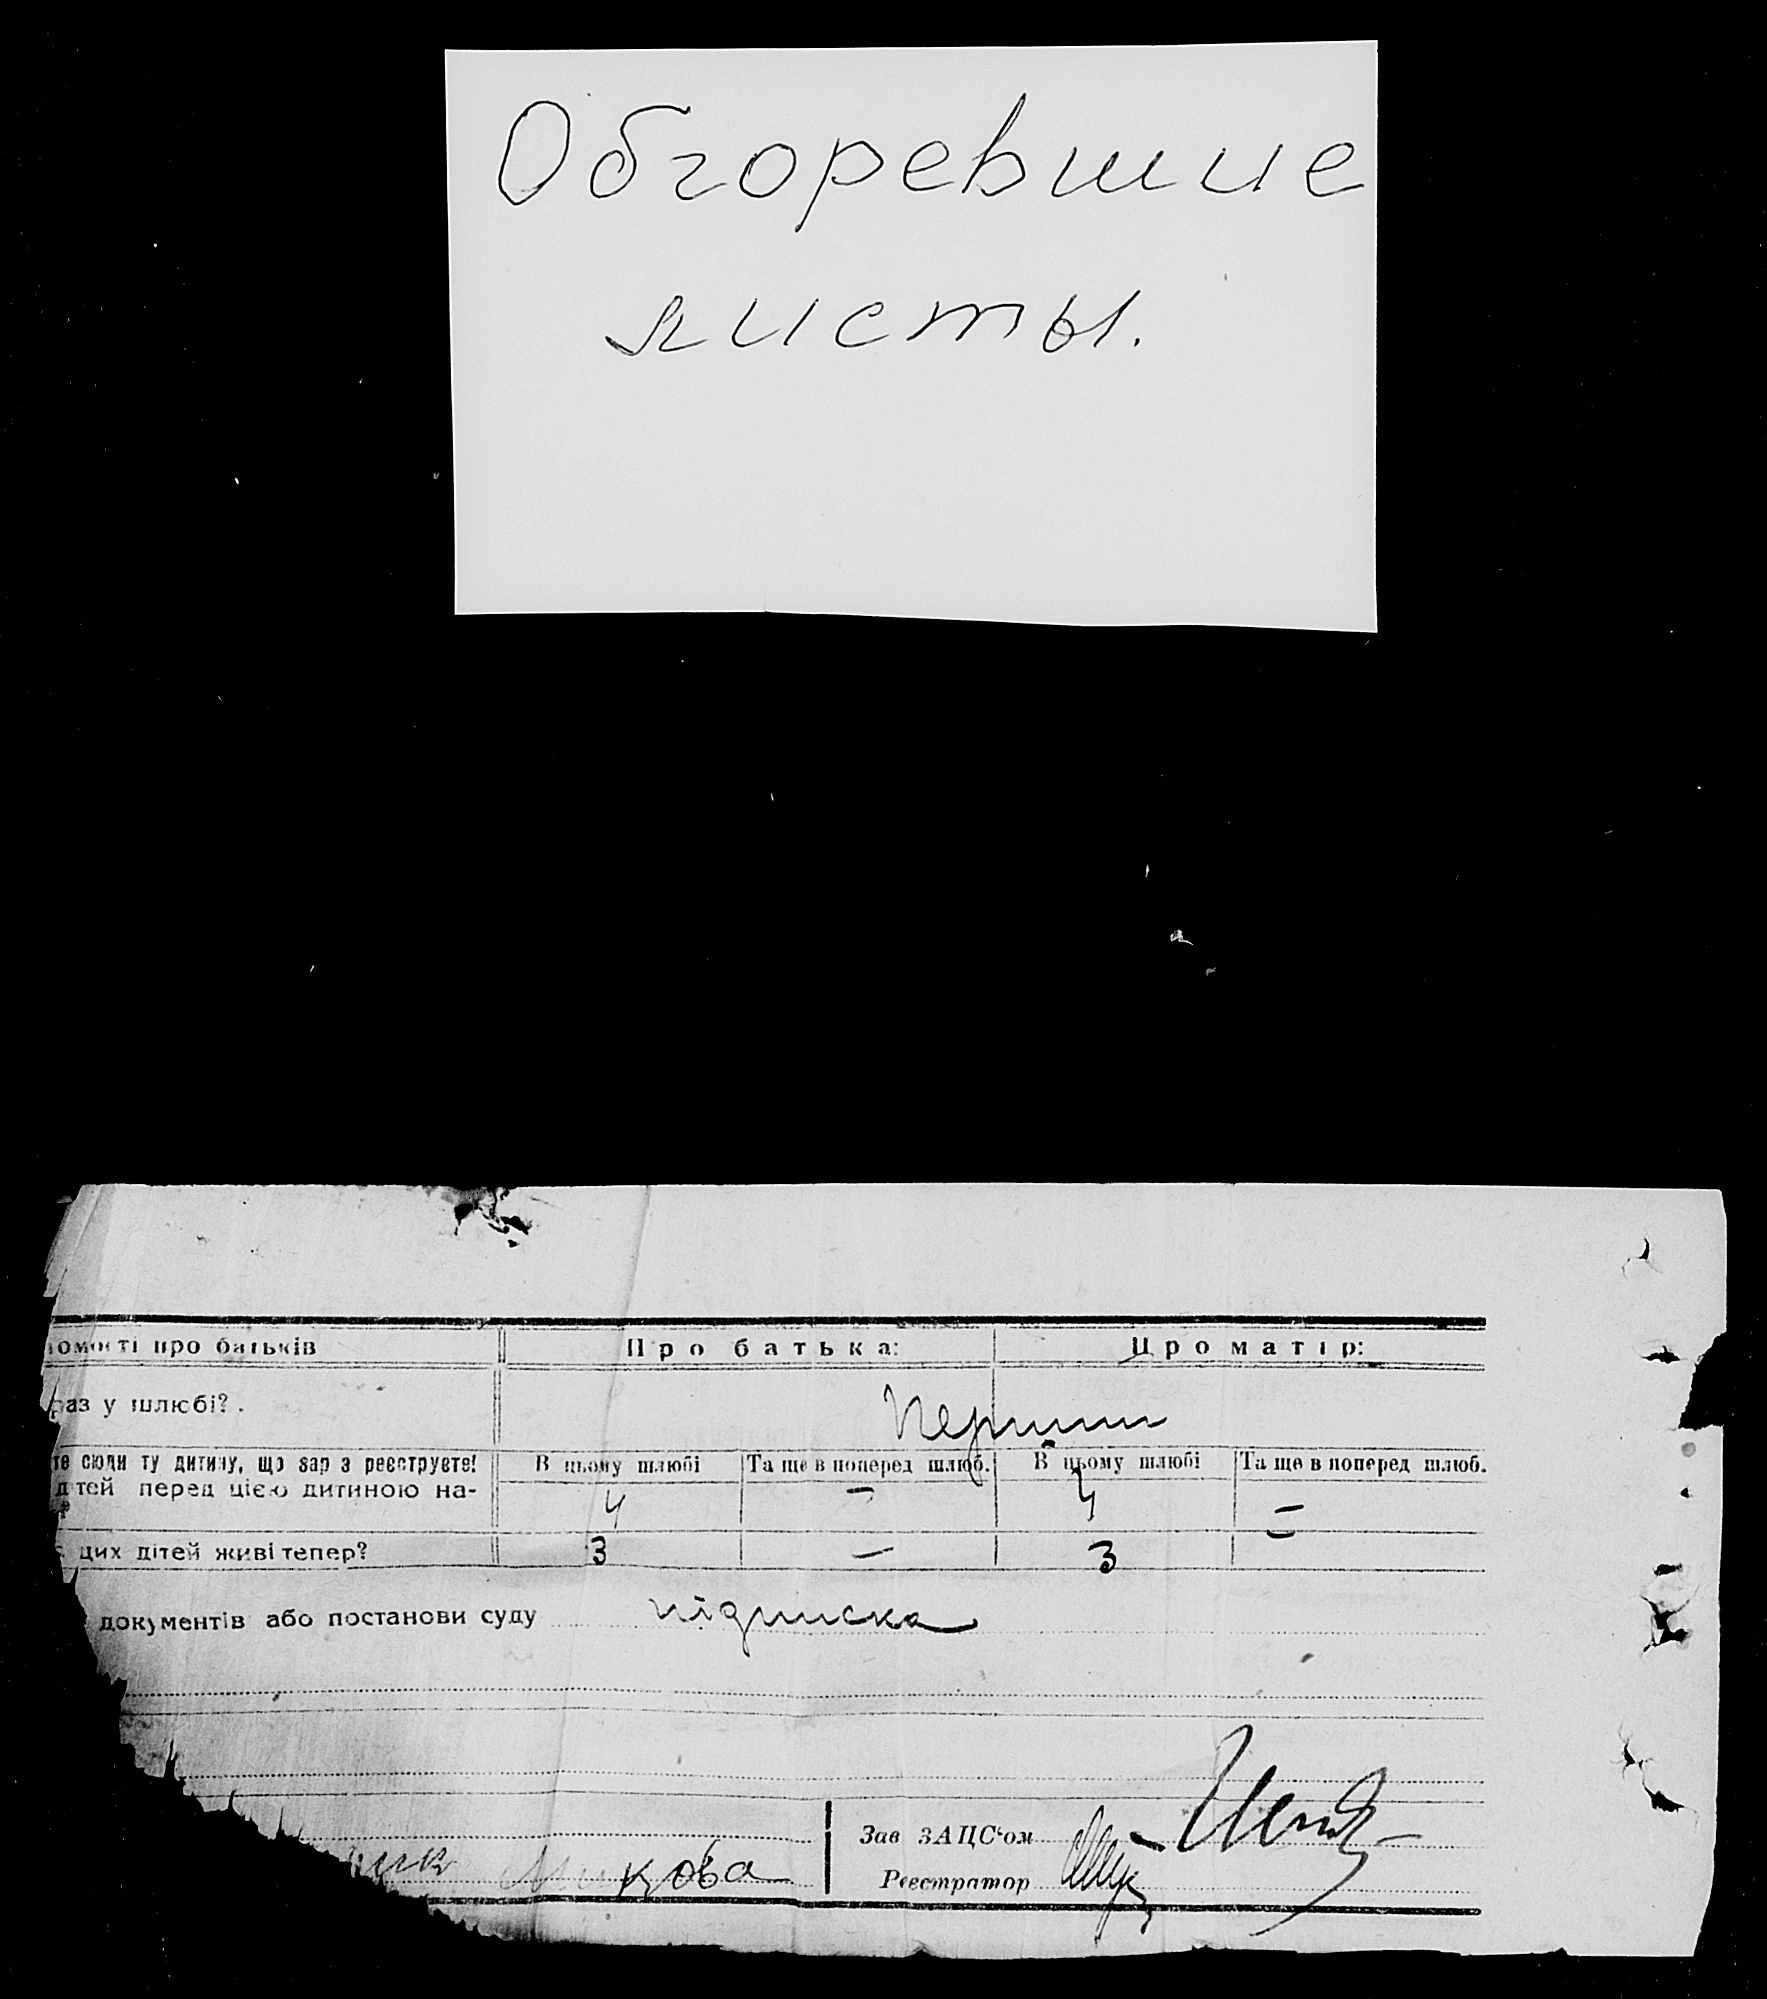 Обгоревшие
листы.
омості про батьків
Про батька:
Про матір:
раз у шлюбі?.
Перший
те сюди ту дитину, що зар з реєструєте!
В цьому шлюбі
Та ще в поперед шлюб.
В цьому шлюбі
Та ще в поперед шлюб.
дітей перед цією дитиною на-
4
—
4
—
цих дітей живі тепер?
3
—
3
—
документів або постанови суду підписка
Зав ЗАЦС‘ом
кова
Реєстратор